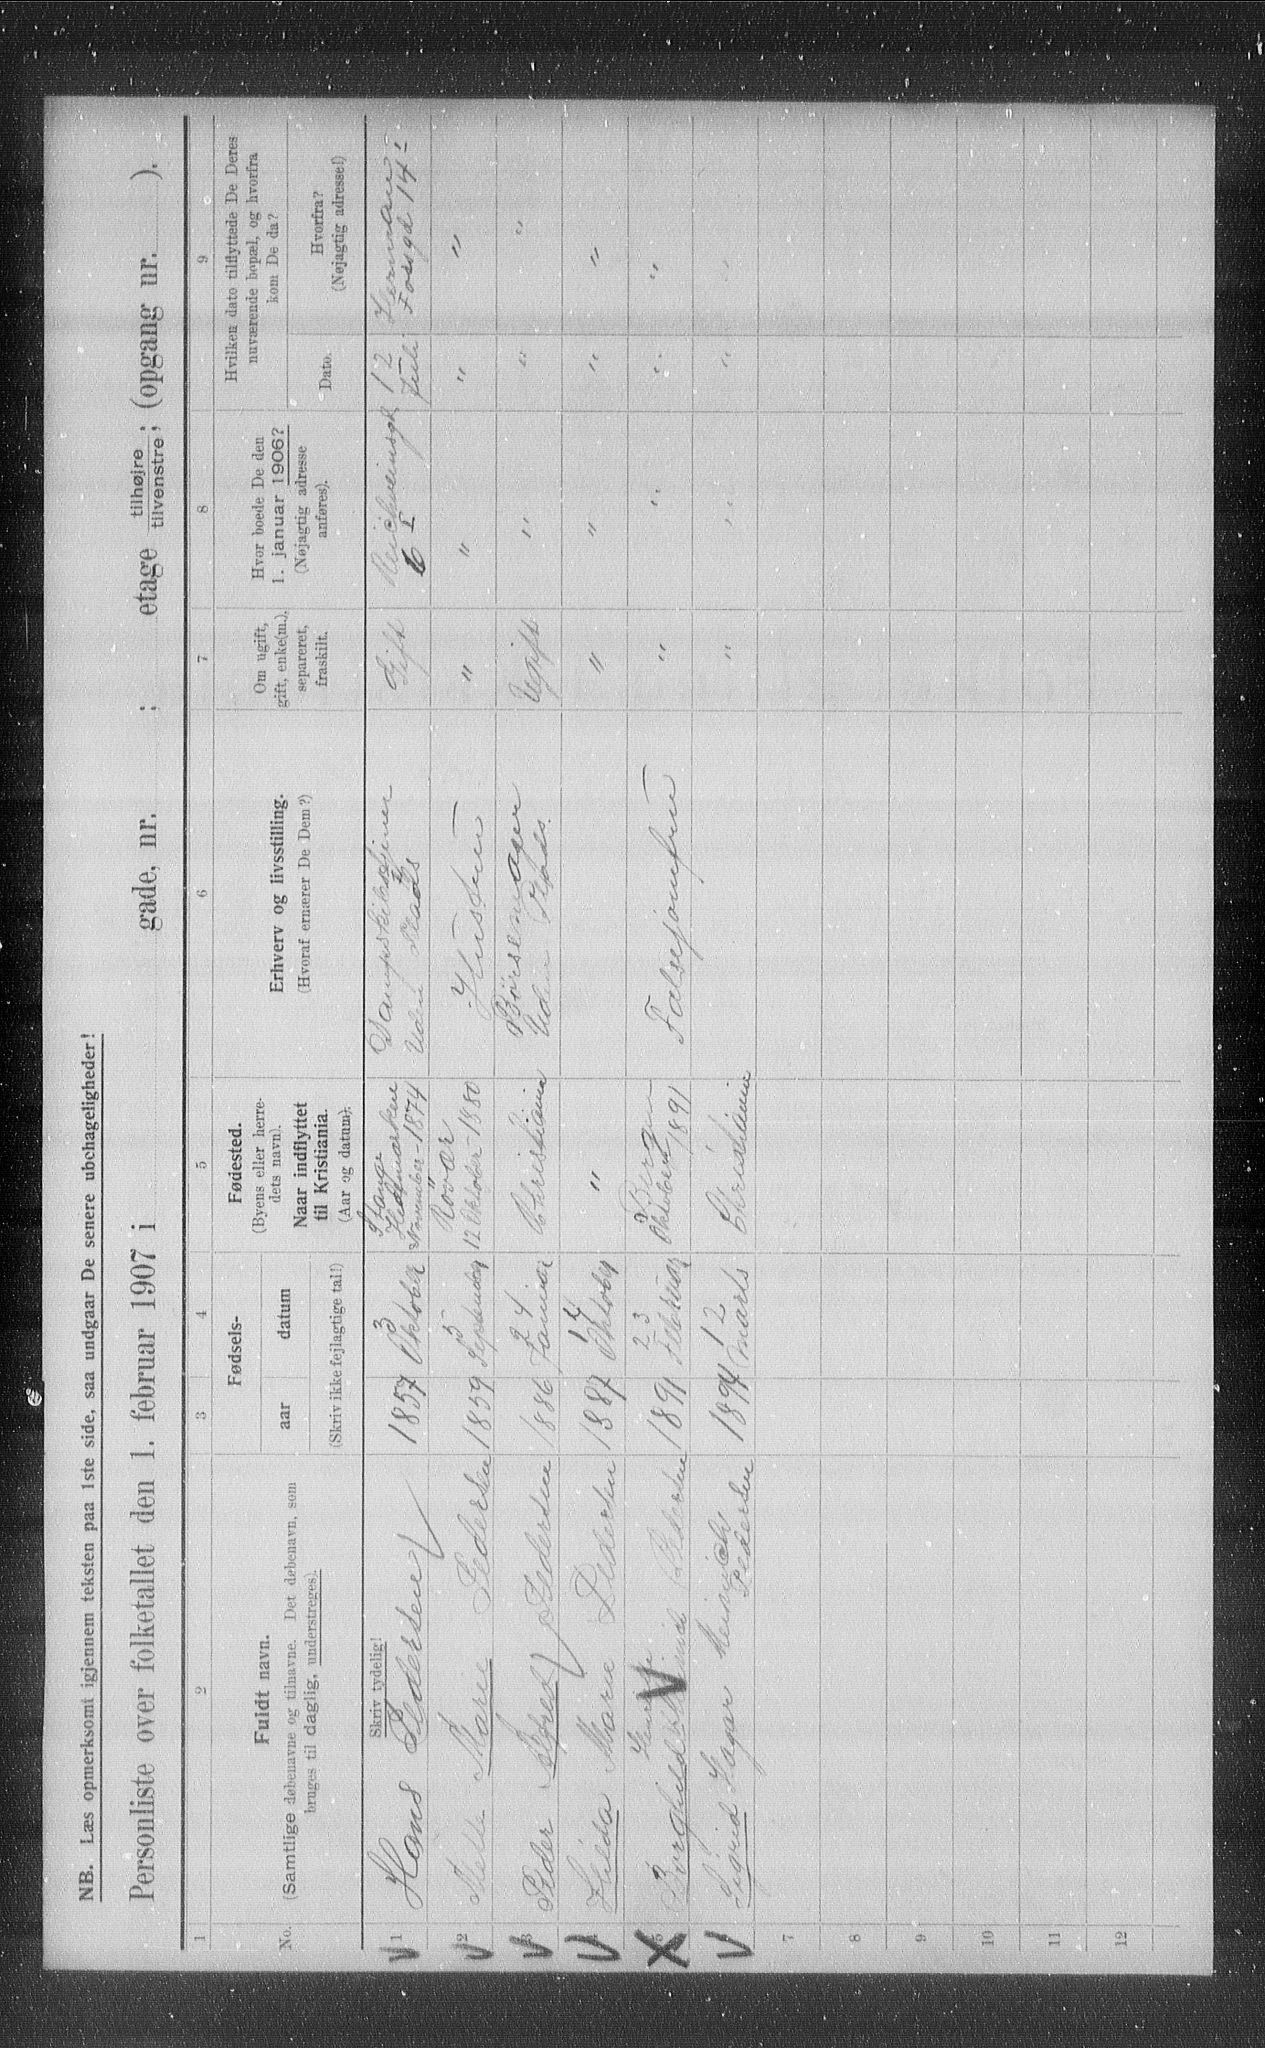 NB. Læs opmerksomt igjennem teksten paa 1ste side, saa undgaar De senere ubehageligheder!
Personliste over folketallet den 1. februar 1907 i gade, nr. ; etage tilhøjre tilvenstre; (opgang nr. ).
1 2 3 4 5 6 7 8 9
No.
Fuldt navn.
(Samtlige døbenavne og tilnavne. Det døbenavn, som
bruges til daglig, understreges).
Fødsels-
aar datum
(Skriv ikke fejlagtige tal!)
Fødested.
(Byens eller herre-
dets navn).
Naar indflyttet
til Kristiania.
(Aar og datum).
Erhverv og livsstilling.
(Hvoraf ernærer De Dem?)
Om ugift,
gift, enke(m.),
separeret,
fraskilt.
Hvor boede De den
1. januar 1906?
(Nøjagtig adresse
anføres).
Hvilken dato tilflyttede De Deres
nuværende bopæl, og hvorfra
kom De da?
Dato.
Hvorfra?
(Nøjagtig adresse!)
Skriv tydelig!
V 1 Hans Pedersen 1857 3 Oktober Stange Hedemarken November 1874 Uden Plads Gift 6 I 12 Juli Herman Fossgd 14
V 2 Marie Pedersen 1859 5 September 12 Oktober 1880 Husfru " " " "
V 3 Peder Alfred Pedersen 1886 24 Januar Christiania Børsemager Uden Plads Ugift " " "
V 4 Hilda Marie Pedersen 1887 14 Oktober " " " " "
X 5 Borghild Pedersen 1891 23 Februar Oktober 1891 " " " "
V Sigrid Dagar Pedersen 1894 12 Marts Christiania " " " "
7
8
9
10
11
12